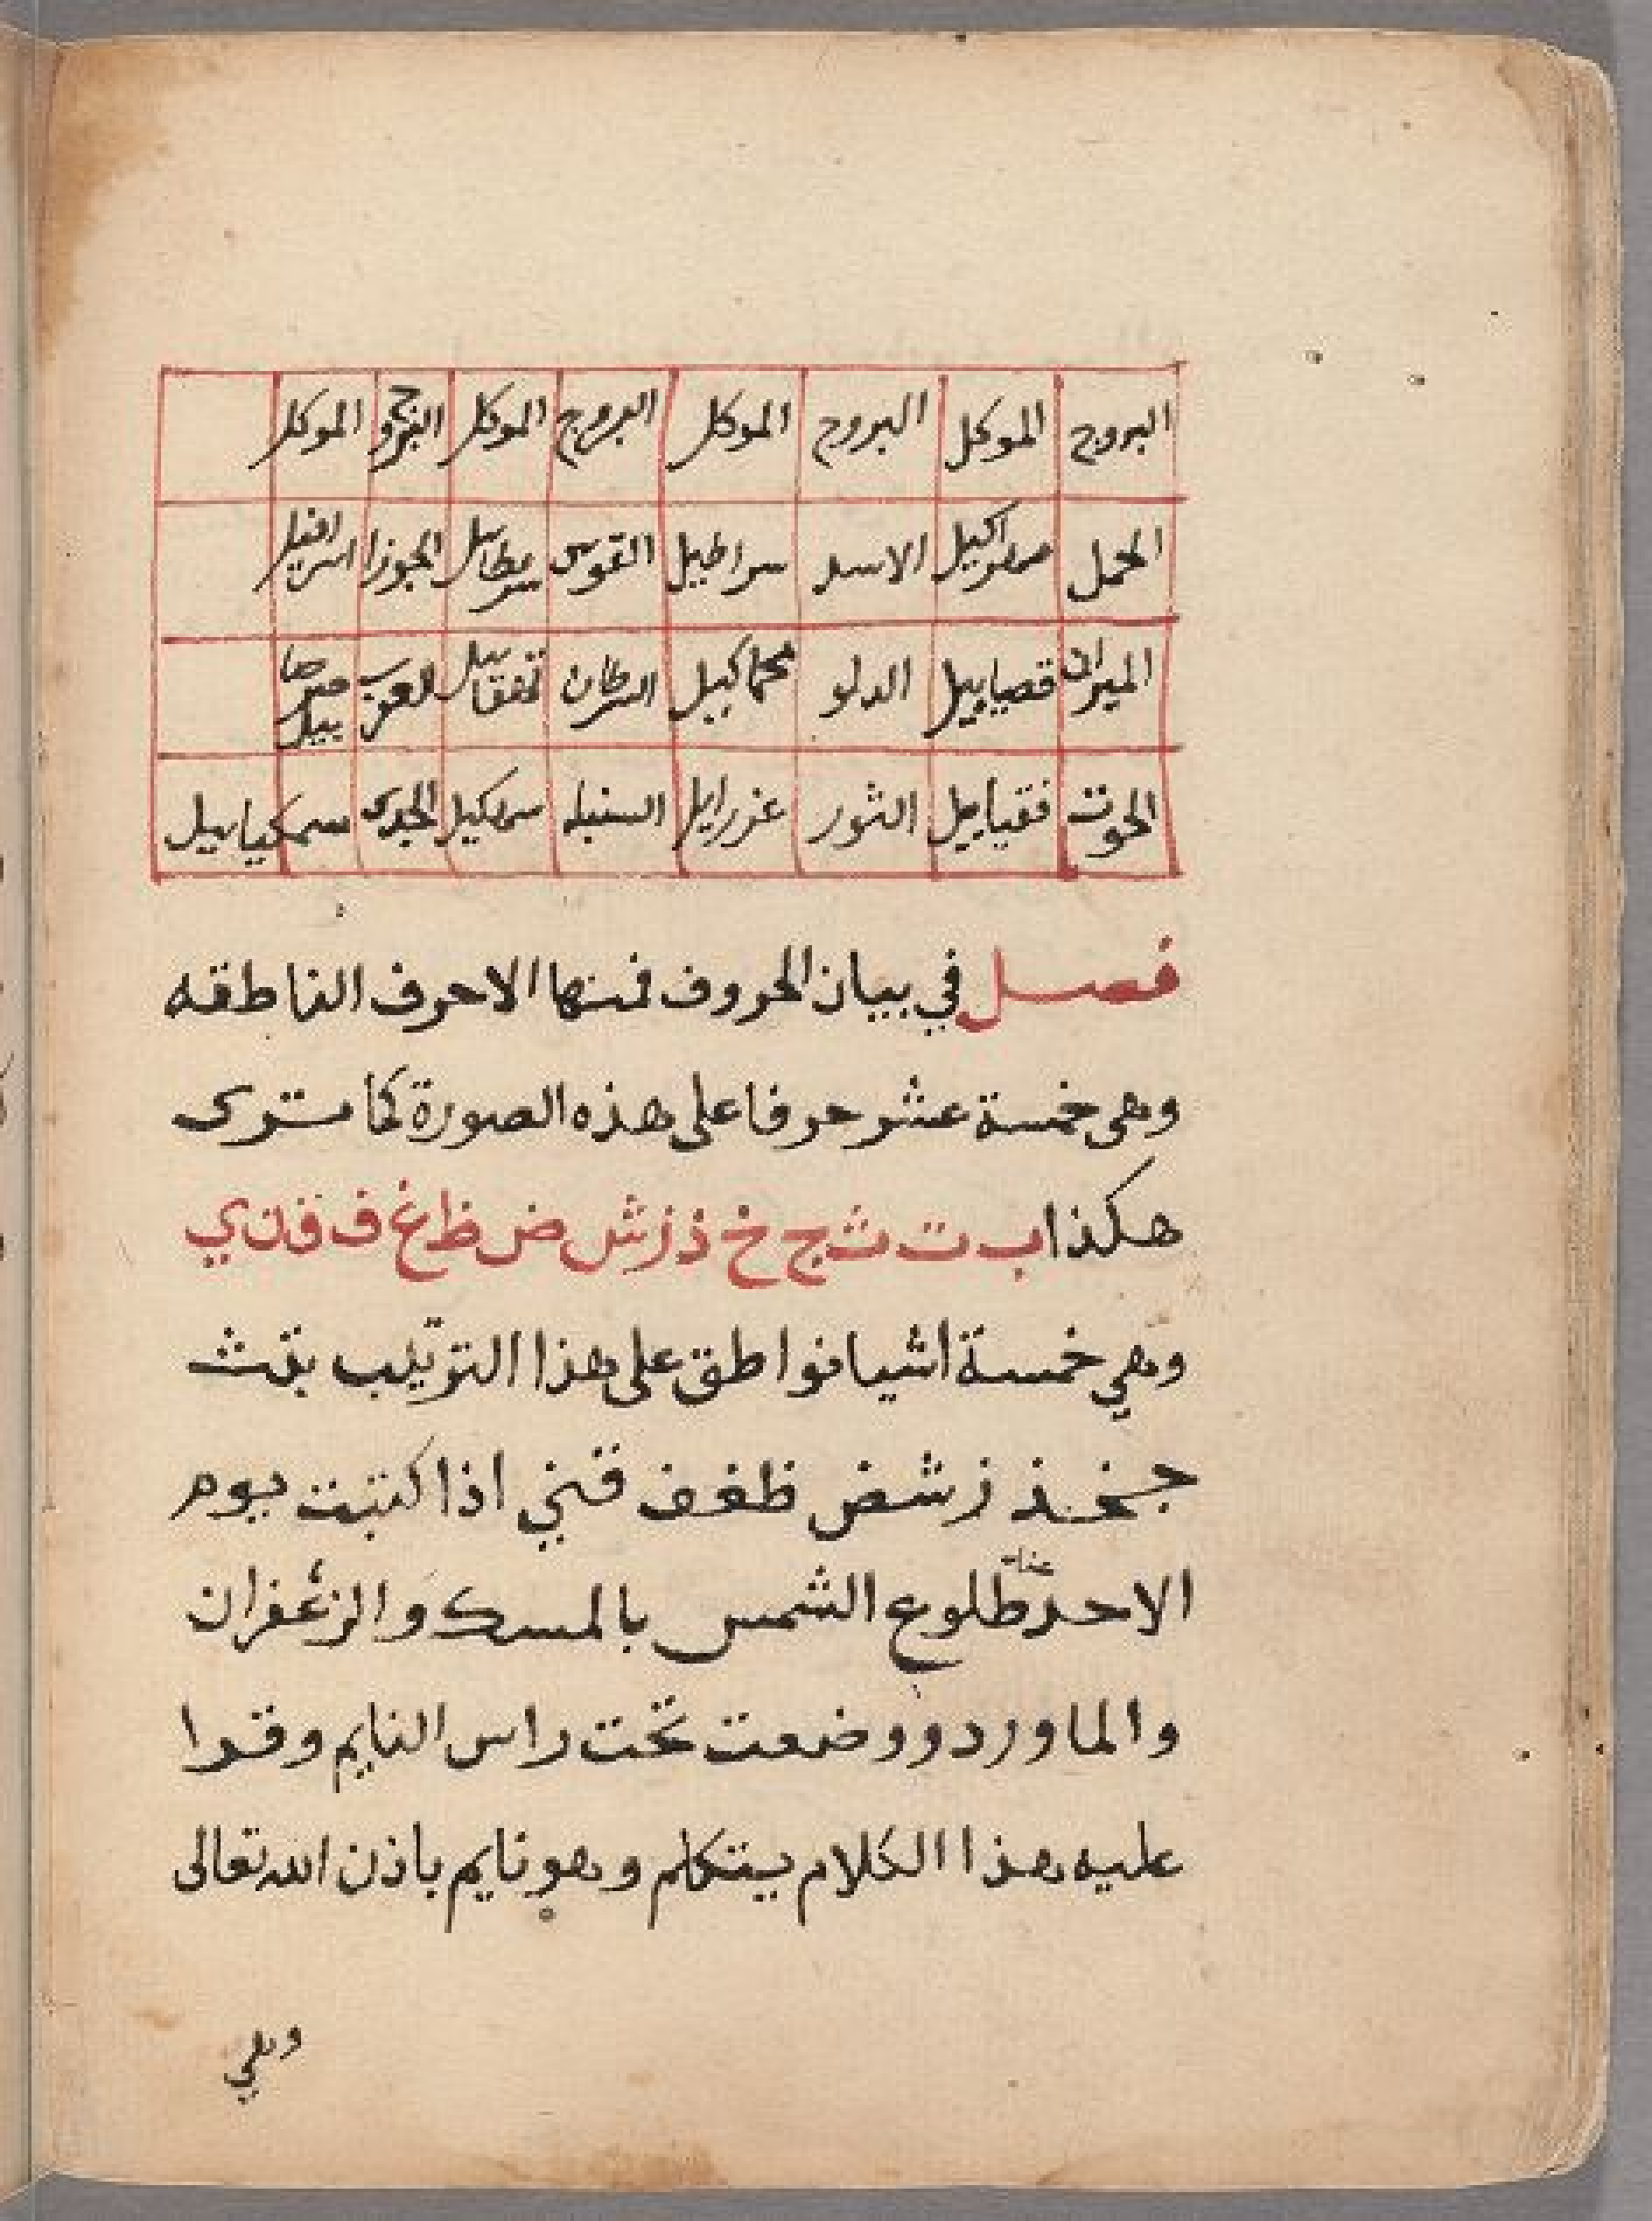 البروج الموكل البروج الموكل البروج الموكل البروج الموكل
الحمل الاسد سراطيل القوس الجوزا اسرافيل
الميزان قصياييل الدلو السرطان العقرب
الحوت فقياييل الثور عزراييل السنبله سهكيل الجدى سمكياييل
فصل في بيان الحروف فمنها الاحرف الناطقه
وهى خمسة عشر حرفا على هذه الصورة كما سترى
هكذا ب ت ث ج خ ذ ز ش ض ظ غ ف ق ن ي
وهي خمسة اشيا نواطق على هذا الترتيب بتث
جخذ زشض ظغف قني اذا كتبت يوم
الاحد عند طلوع الشمس بالمسك والزعفران
والماورد ووضعت تحت راس النايم وقرا
عليه هذا الكلام يتكلم وهو نايم باذن الله تعالى
وهي